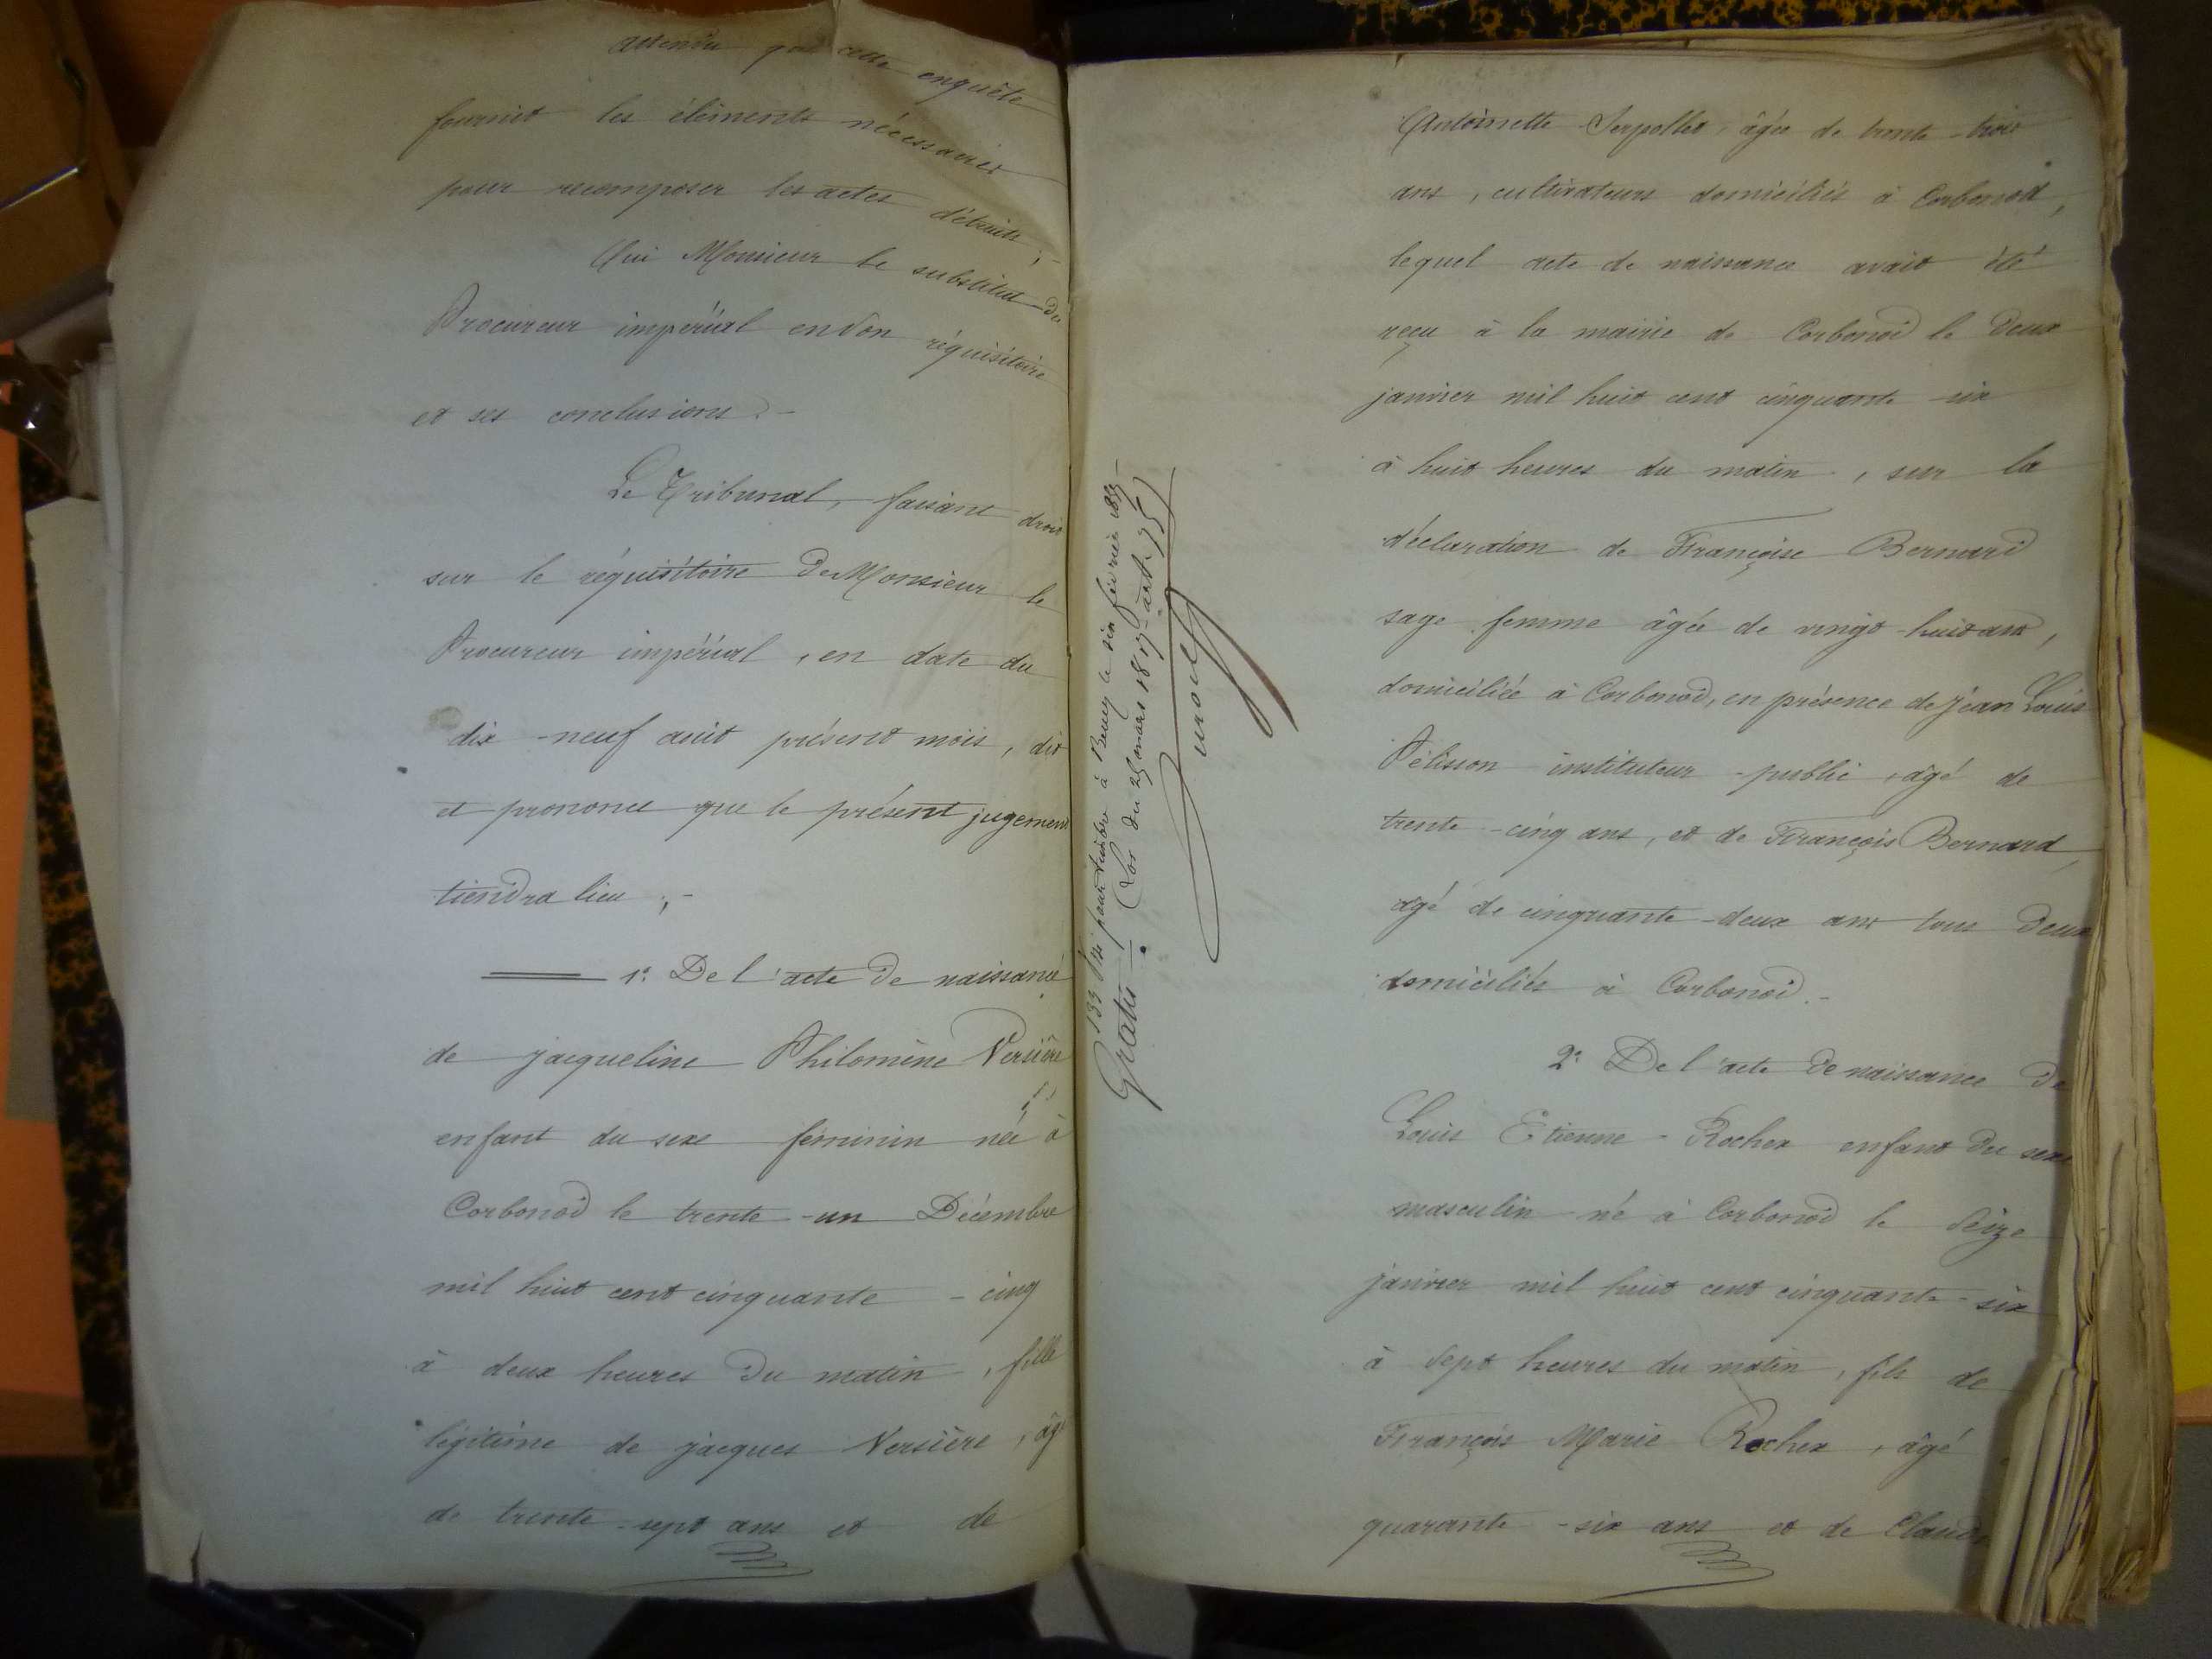 attendu que cette enquête
fournit les éléments nécessaires
pour recomposer les actes détruits ;-
Oui Monsieur le substitut du
Procureur impérial en son réquisitoire
et ses conclusions ;-
Le Tribunal, faisant droit
sur le réquisitoire de Monsieur le
Procureur impérial, en date du
dix-neuf août présent mois, dit
et prononce que le présent jugement
tiendra lieu ;-
1° De l'acte de naissance
de jacqueline Philomène Versière
enfant du sexe féminin née à
Corbonod le trente-un Décembre
mil huit cent cinquante-cinq
à deux heures du matin, fille
légitime de jacques Versière, âgé
de trente-sept ans et de
133 Visé pour timbre à Belley le six février 185
Gratis. (Loi du 25 mars 1817 - art. 75)
Antoinette Serpollet, âgée de trente-trois
ans, cultivateurs domiciliés à Corbonod,
lequel acte de naissance avait été
reçu à la mairie de Corbonod le deux
janvier mil huit cent cinquante-six
à huit heures du matin, sur la
déclaration de Françoise Bernard
sage femme âgée de vingt-huit ans,
domiciliée à Corbonod, en présence de jean Louis
Pélisson instituteur-public, âgé de
trente-cinq ans, et de François Bernard,
âgé de cinquante-deux ans tous deux
domiciliés à Corbonod.-
2° De l'acte de naissance de
Louis Etienne Rocher enfant du sexe
masculin né à Corbonod le Seize
janvier mil huit cent cinquante-six
à sept heures du matin, fils de
François Marie Rocher, âgé
quarante-six ans et de Claude